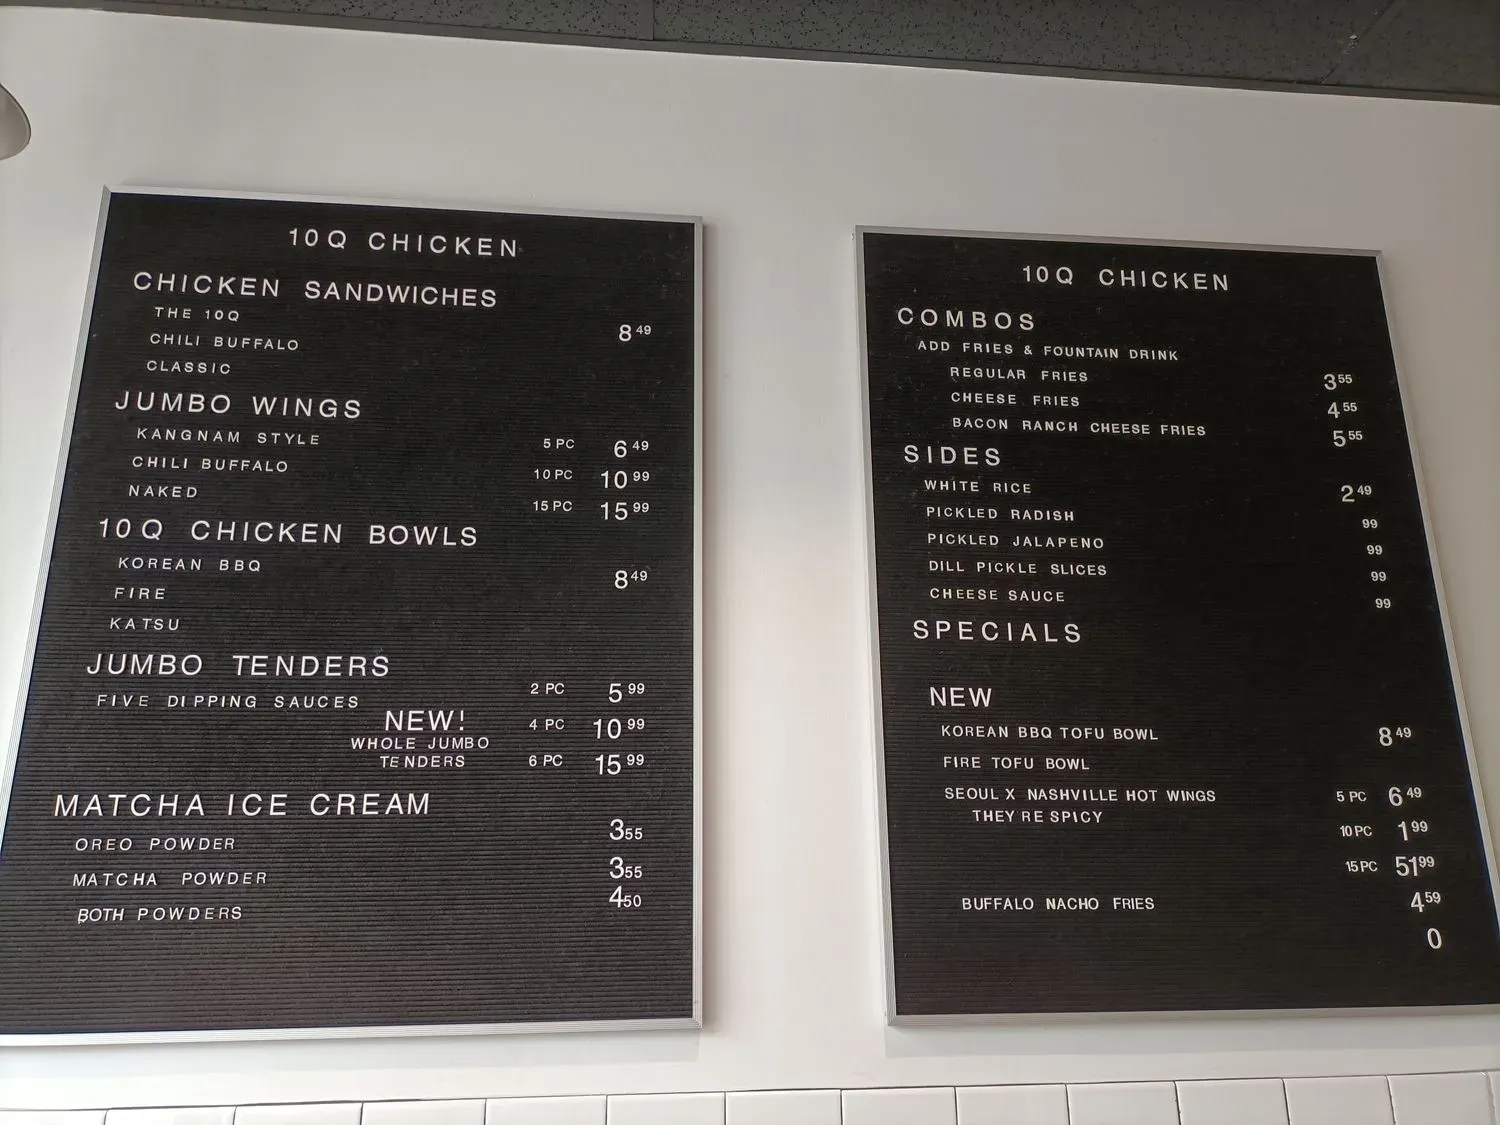 10Q CHICKEN
CHICKEN SANDWICHES
THE 10Q 8 49
CHILI BUFFALO
CLASSIC
JUMBO WINGS
KANGNAM STYLE 5 PC 6 49
CHILI BUFFALO 10 PC 10 99
NAKED 15 PC 15 99
10Q CHICKEN BOWLS
KOREAN BBQ 8 49
FIRE
KATSU
JUMBO TENDERS
FIVE DIPPING SAUCES 2 PC 5 99
NEW! 4 PC 10 99
WHOLE JUMBO
TENDERS 6 PC 15 99
MATCHA ICE CREAM
OREO POWDER 3 55
MATCHA POWDER 3 55
BOTH POWDERS 4 50
10Q CHICKEN
COMBOS
ADD FRIES & FOUNTAIN DRINK
REGULAR FRIES 3 55
CHEESE FRIES 4 55
BACON RANCH CHEESE FRIES 5 55
SIDES
WHITE RICE 2 49
PICKLED RADISH 99
PICKLED JALAPENO 99
DILL PICKLE SLICES 99
CHEESE SAUCE 99
SPECIALS
NEW
KOREAN BBQ TOFU BOWL 8 49
FIRE TOFU BOWL
SEOUL X NASHVILLE HOT WINGS 5 PC 6 49
THEY'RE SPICY 10 PC 1 99
15 PC 51 99
BUFFALO NACHO FRIES 4 59
0